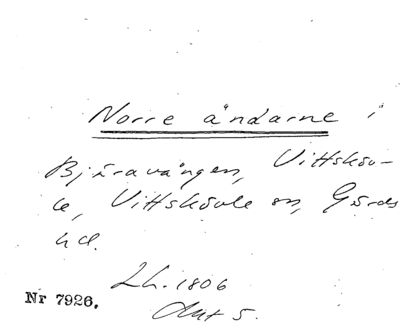 Norre ändarne i
Bjäravången, Vittsköv-
le, Vittskövle sn, Gärds
hd.
Lh. 1806
Akt 5.
Nr 7926.